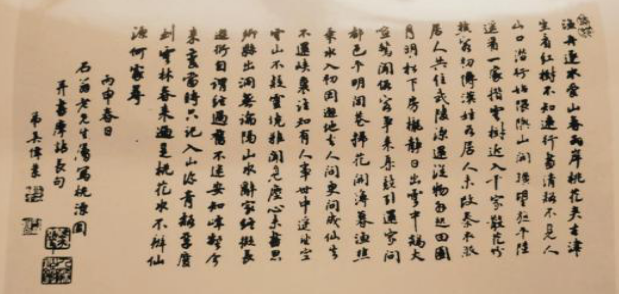 漁舟逐水愛山春兩岸桃花夾去津
坐看紅樹不知遠行盡清谿不見人
山口潛行始隈隩山開曠望旋平陸
遙看一處攢雲樹近入千家散花竹
樵客初傳漢姓名居人未改秦衣服
居人共住武陵源還從物外起田園
月明松下房櫳靜日出雲中鷄犬
喧驚聞俗客爭來集競引還家問
都邑平明閭巷掃花開薄暮漁樵
乘水入初因避地去人間更問成仙去
不還峽裏誰知有人事世中遙望空
雲山不疑靈境難聞見塵心未盡思
鄉縣出洞無論隔山水辭家終擬長
遊衍自謂經過舊不迷安知峰壑今
來變當時只記入山深青谿幾度
到雲林春來遍是桃花水不辨仙
源何處尋
丙申春日
石翁老先生屬寫桃源圖
并書摩詰長句
弟吳偉業